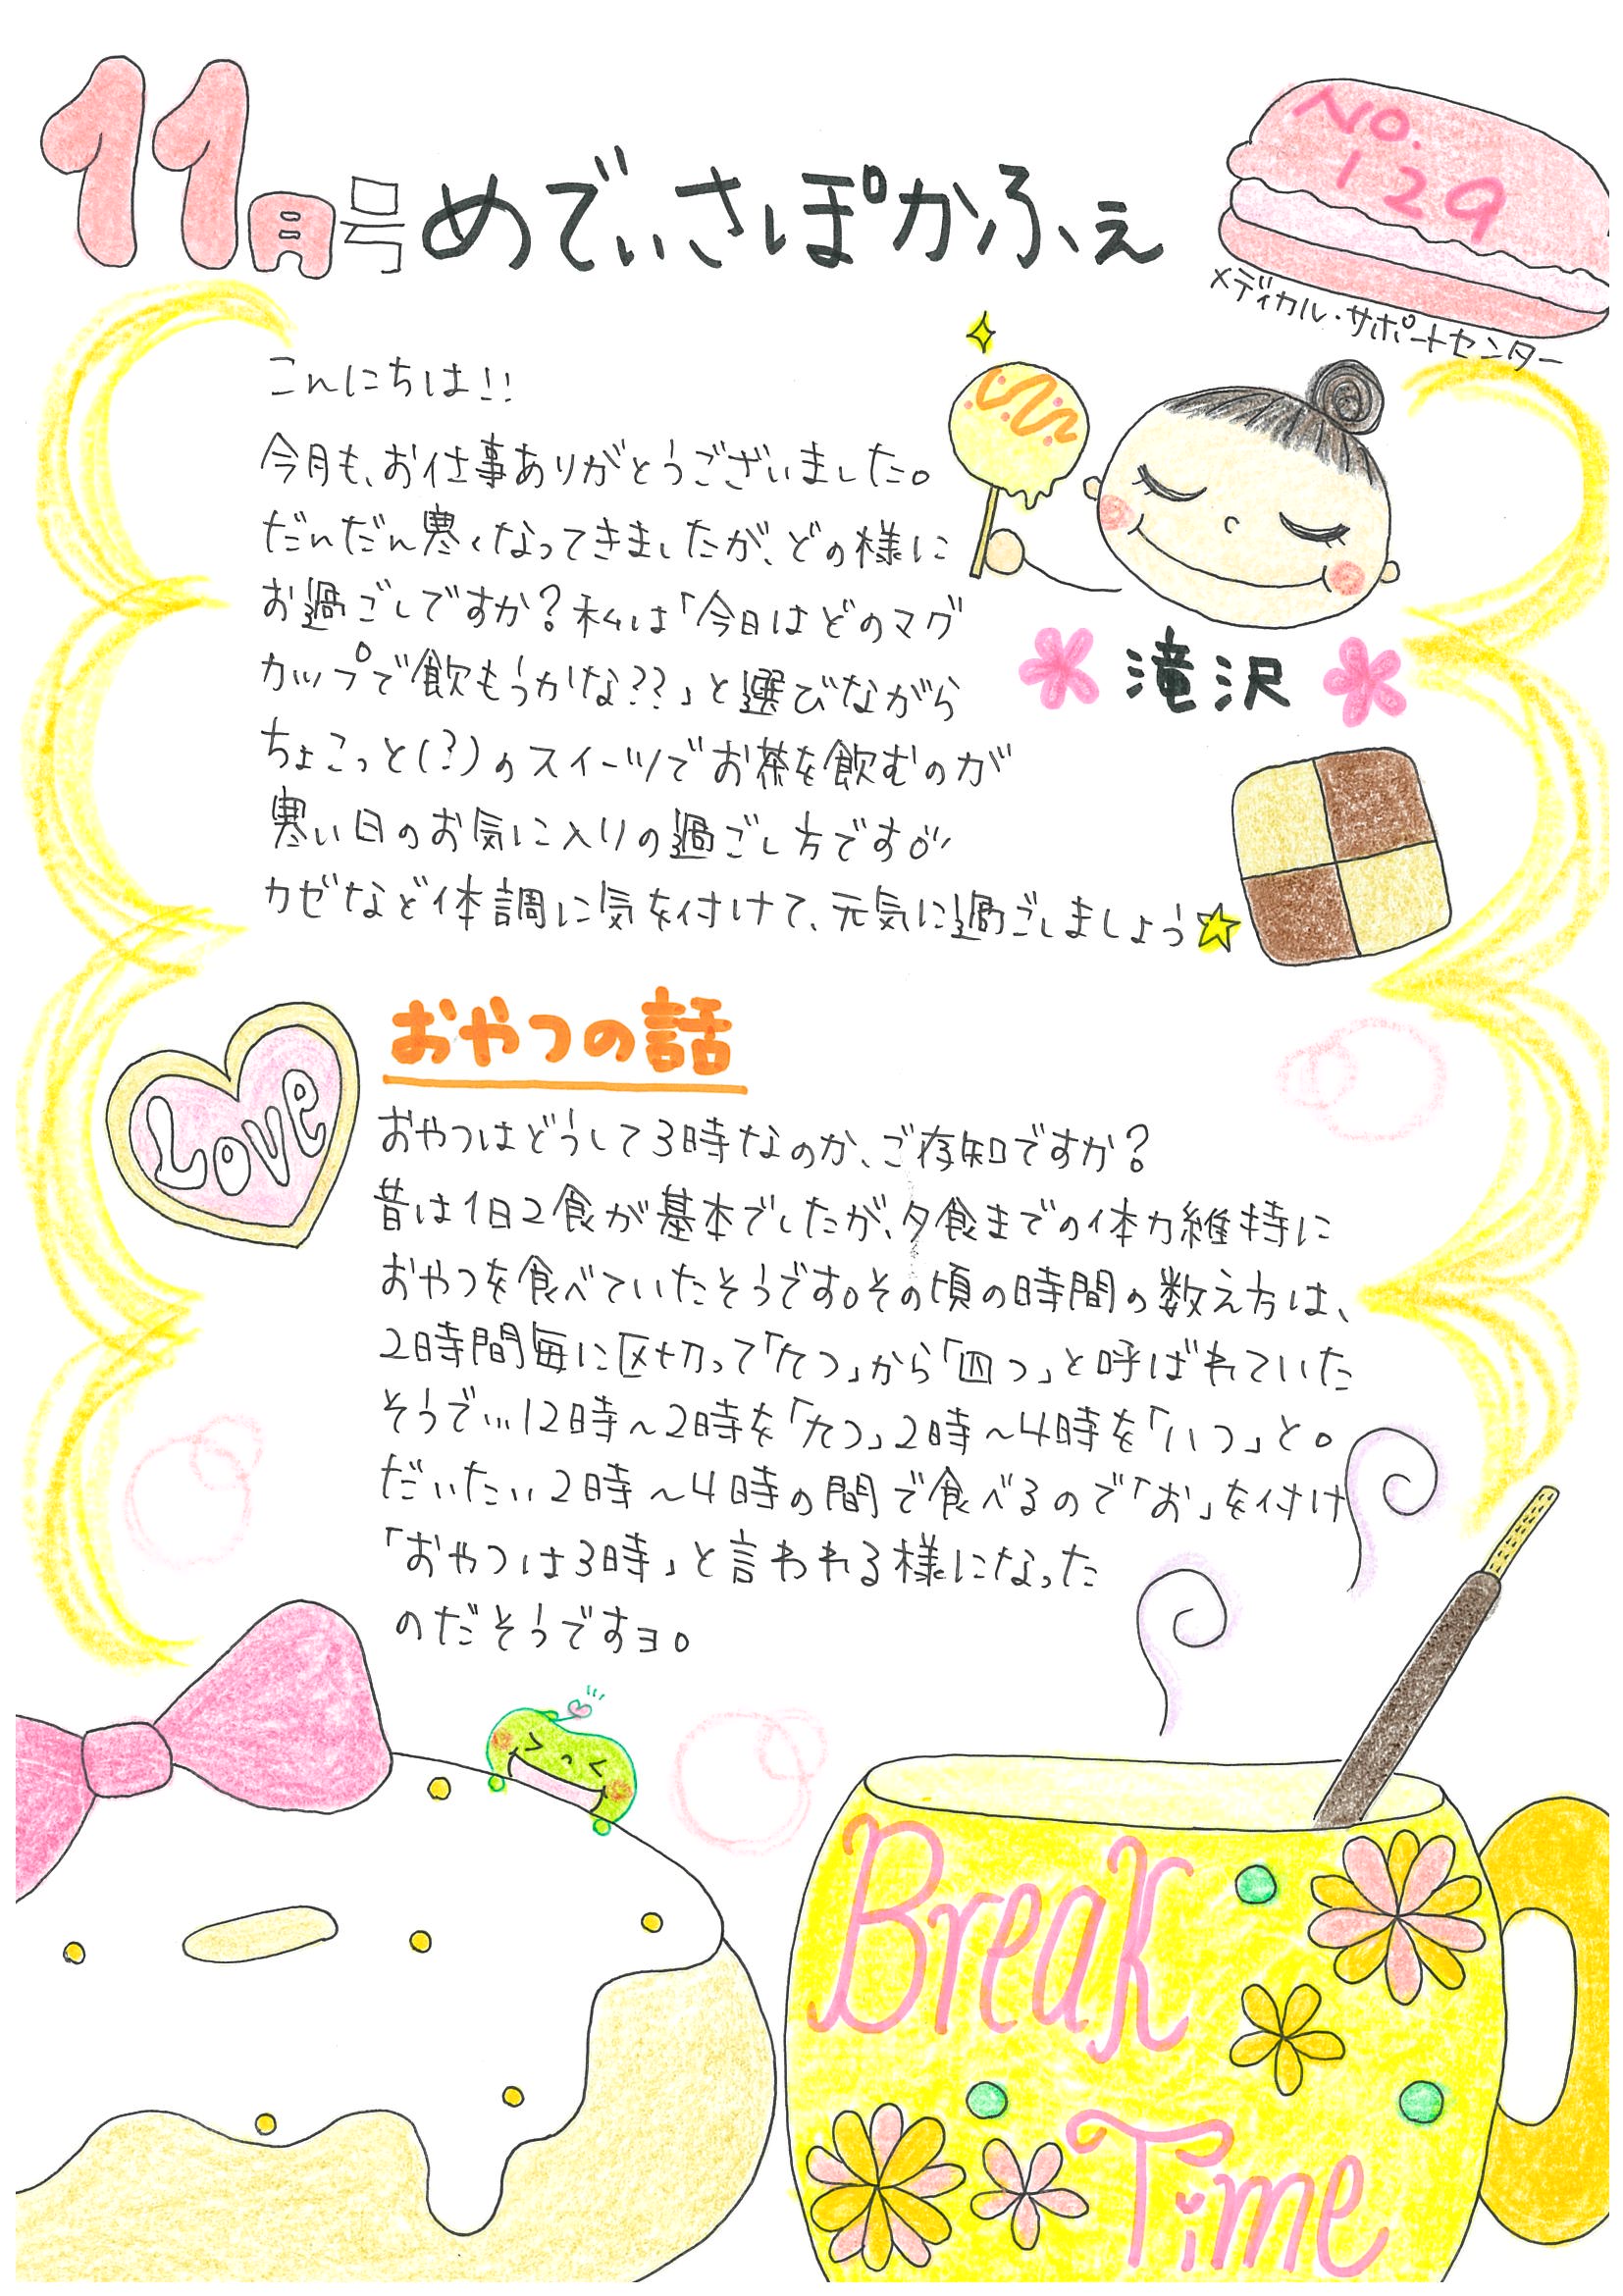 11月号 めでぃさぽかふぇ
NO.
129
メディカル・サポートセンター
こんにちは!!
今月も、お仕事ありがとうございました。
だんだん寒くなってきましたが、どの様に
お過ごしですか?私は「今日はどのマグ
カップで飲もうかな??」と選びながら
ちょこっと(?)のスイーツでお茶を飲むのが
寒い日のお気に入りの過ごし方です。
カゼなど体調に気を付けて、元気に過ごしましょう☆
滝沢
おやつの話
Love
おやつはどうして3時なのか、ご存知ですか?
昔は1日2食が基本でしたが、夕食までの体力維持に
おやつを食べていたそうです。その頃の時間の数え方は、
2時間毎に区切って「九つ」から「四つ」と呼ばれていた
そうで…12時~2時を「九つ」2時~4時を「八つ」と。
だいたい2時~4時の間で食べるので「お」を付け
「おやつは3時」と言われる様になった
のだそうですョ。
Break
Time